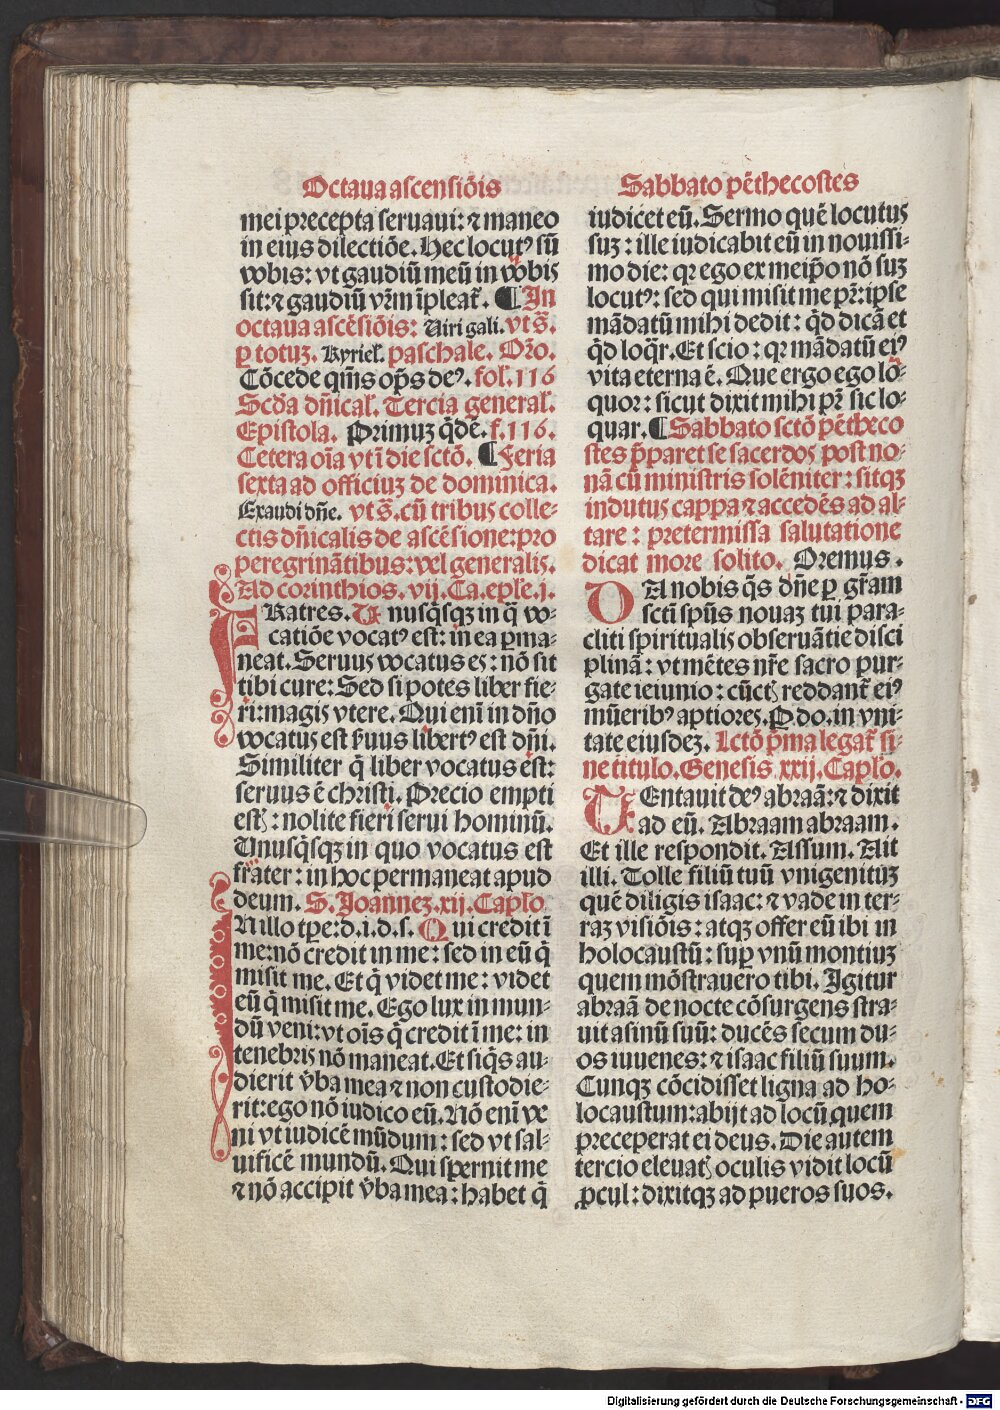 Octaua ascensiōis
mei precepta seruaui: ⁊ maneo
in eius dilectiōe. Hec locutꝰ sū
vobis: vt gaudiū meū in vobis
sit: ⁊ gaudiū vr̄m īpleat᷑. ¶ In
octaua ascēsiōis: Uiri gali. vt s̄.
ꝑ totuꝫ. Kyriel̄. paschale. Or̄o.
Cōcede qm̄s op̄s deꝰ. fol. 116
Scd̄a dn̄ical̄. Tercia general̄.
Epistola. Primuꝫ q̄dē. f. 116.
Cetera oīa vt ī die sctō. ¶ Feria
sexta ad officiuꝫ de dominica.
Exaudi dn̄e. vt s̄. cū tribus colle⸗
ctis dn̄icalis de ascēsione: pro
peregrinātibus: vel generalis.
Ad corinthios. vij. Ca. ep̄le. j.
FRatres. Unusq̄sqꝫ in q̄ vo⸗
catiōe vocatꝰ est: in ea ꝑma⸗
neat. Seruus vocatus es: nō sit
tibi cure: Sed si potes liber fie⸗
ri: magis vtere. Qui enī in dn̄o
vocatus est s̄uus libertꝰ est dn̄i.
Similiter q̄ liber vocatus est:
seruus ē christi. Precio empti
estꝭ: nolite fieri serui hominū.
Unusq̄sqꝫ in quo vocatus est
frater: in hoc permaneat apud
deum. S. Joannez. xij. Caplo.
INillo tp̄e: d. i. d. s. Qui credit ī
me: nō credit in me: sed in eū q̄
misit me. Et q̄ videt me: videt
eū q̄ misit me. Ego lux in mun⸗
dū veni: vt oīs q̄ credit ī me: in
tenebris nō maneat. Et siq̄s au⸗
dierit v̄ba mea ⁊ non custodie⸗
rit: ego nō iudico eū. Nō enī ve
ni vt iudicē mūdum: sed vt sal⸗
uificē mundū. Qui spernit me
⁊ nō accipit v̄ba mea: habet q̄
Sabbato pēthecostes
iudicet eū. Sermo quē locutus
suꝫ: ille iudicabit eū in nouissi⸗
mo die: qꝛ ego ex meip̄o nō suꝫ
locutꝰ: sed qui misit me pr̄: ipse
mādatū mihi dedit: q̄d dicā et
q̄d loq̄r. Et scio: qꝛ mādatū eiꝰ
vita eterna ē. Que ergo ego lo⸗
quor: sicut dixit mihi pr̄ sic lo⸗
quar. ¶ Sabbato sctō pētheco
stes p̄paret se sacerdos post no⸗
nā cū ministris solēniter: sitqꝫ
indutus cappa ⁊ accedēs ad al⸗
tare: pretermissa salutatione
dicat more solito. Oremus.
DA nobis q̄s dn̄e ꝑ gr̄am
scti sp̄us nouaꝫ tui para⸗
cliti spiritualis obseruātie disci
plinā: vt mētes nr̄e sacro pur⸗
gate ieiunio: cūctꝭ reddant᷑ eiꝰ
mūeribꝰ aptiores. P. do. in vni⸗
tate eiusdeꝫ. Lctō p̄ma legat᷑ si⸗
ne titulo. Genesis xxij. Caplo.
TEntauit deꝰ abraā: ⁊ dixit
ad eū. Abraam abraam.
Et ille respondit. Assum. Ait
illi. Tolle filiū tuū vnigenituꝫ
quē diligis isaac: ⁊ vade in ter⸗
raꝫ visiōis: atqꝫ offer eū ibi in
holocaustū: suꝑ vnū montiuꝫ
quem mōstrauero tibi. Igitur
abraā de nocte cōsurgens stra⸗
uit asinū suū: ducēs secum du⸗
os iuuenes: ⁊ isaac filiū suum.
Cunqꝫ cōcidisset ligna ad ho⸗
locaustum: abijt ad locū quem
preceperat ei deus. Die autem
tercio eleuatꝭ oculis vidit locū
ꝓcul: dixitqꝫ ad pueros suos.
Digitalisierung gefördert durch die Deutsche Forschungsgemeinschaft - DFG